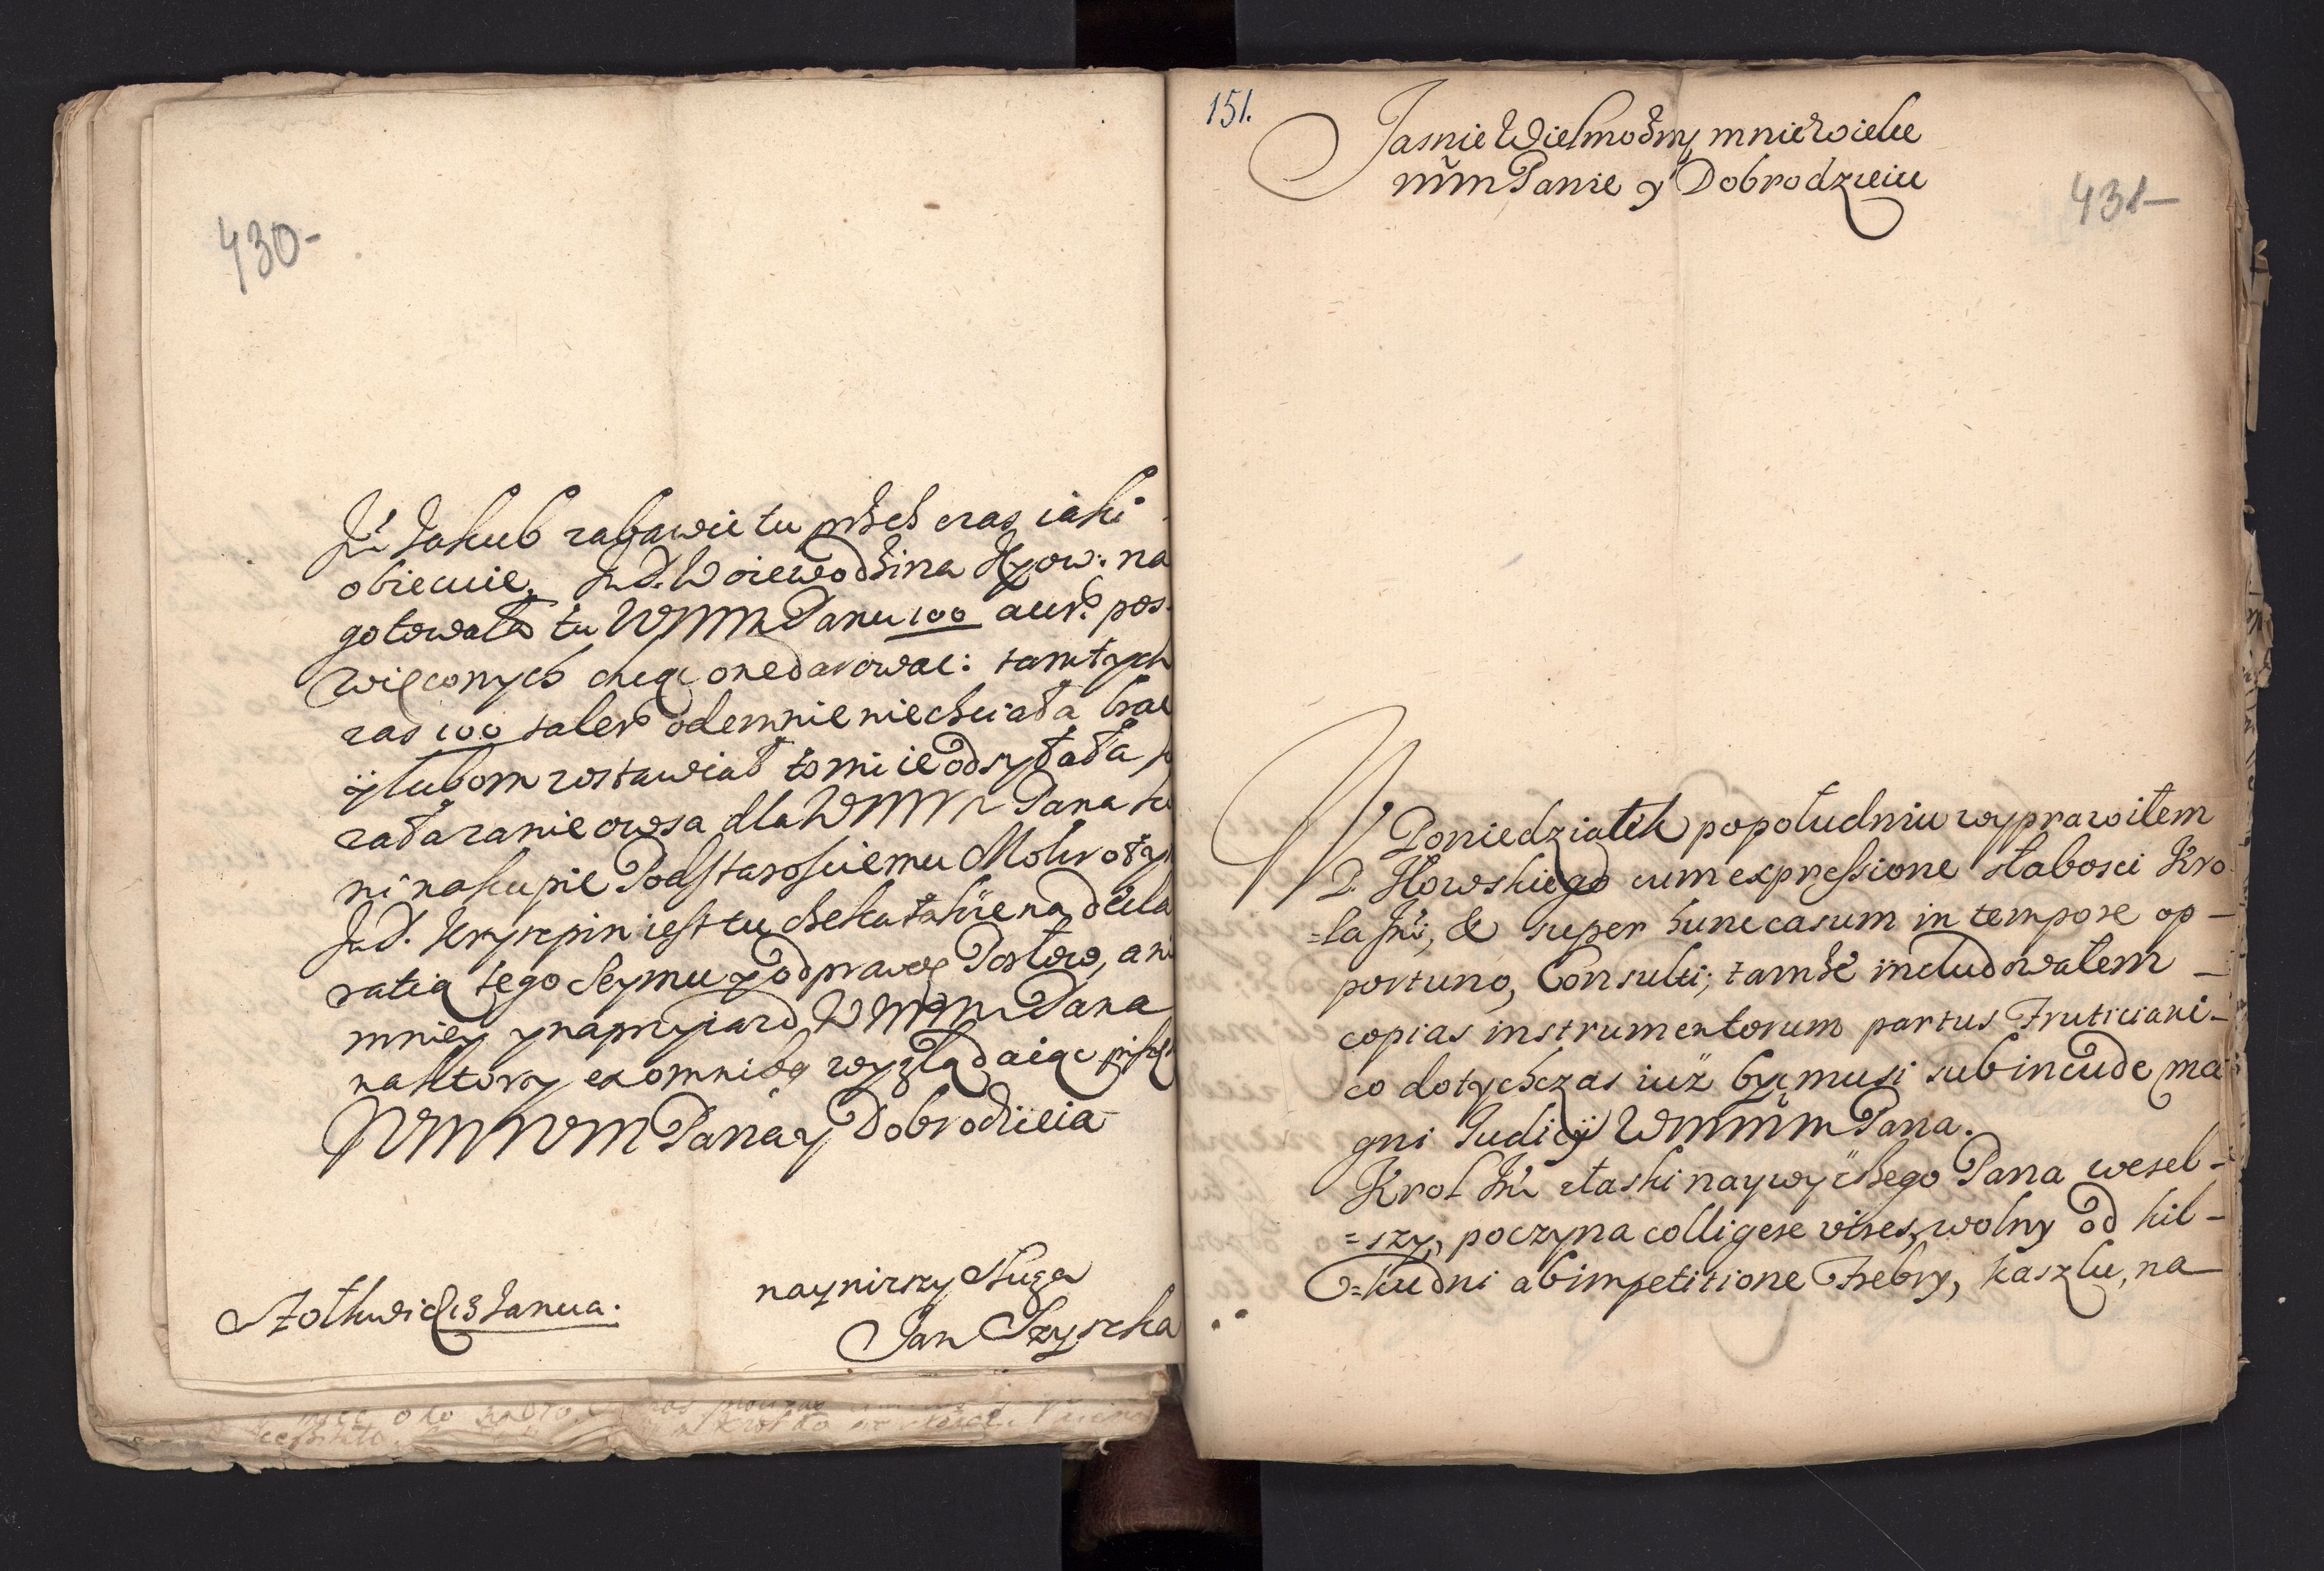 430-
Jmć Jakub zabawić tu przez czas iaki
obiecuie. JmP. Woiewodzina Kyow: na
gotowała tu WMM Panu 100 aur: pos-
więconych chcąc one darowac: tamtych
zas 100 taler odemnie niechciała brac
ÿ lubom zostawiał to mi ie odsyłała
zała zanie owsa dla WMM Pana
ni nakupie Podstarosciemu Mokroty
JmP. iest tu czeka także na dekla
ratią tego Seymu y odprawę Posłow, a ni
mniey y na przyiazd WMM Pana
na ktory ex omnibq wyglądaiąc
WMWM Pana y Dobrodzieia
naynizszy sługa
Żołkwi d 13 Janua.
Jan Szyszka
151.
Jasnie Wielmozny mnie Wielce
mm Panie y Dobrodzieiu
431-
W Poniedziałek popołudniu wyprawiłem
P. Iłowskiego cum expressione słabosci Kro
=la Jmci, & super hunc casum in tempore op-
portuno, Consulti; tamże includowałem
copias instrumentorum partus Fruticiani-
co dotychczas iuż byc musi sub incude ma
gni Judicÿ WMMM Pana.
Krol Jmć z łaski naywyższego Pana wesel-
=szy, poczyna colligere vires, wolny od kil-
=ku dni ab impetitione Febry, kaszlu, na-